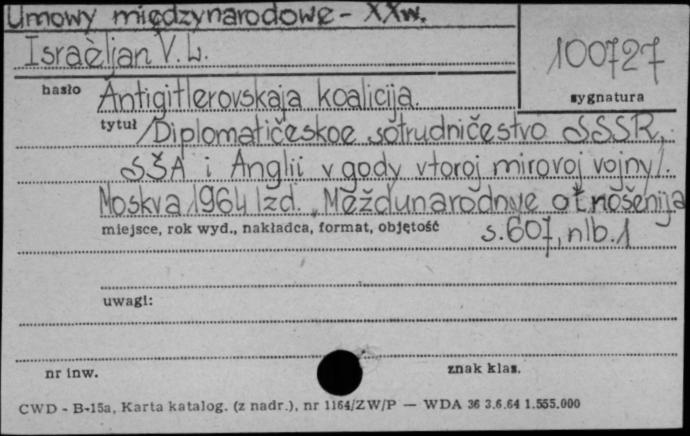 Umowy międzynarodowe - XXw.
Israèljan V. L.
100727
hasło
sygnatura
Antigitlerovskaja koalicija.
tytuł
/Diplomatičeskoe sotrudničestvo SSSR,
SŠA i Anglii v gody vtoroj mirovoj vojny/.
Moskva 1964 Izd. "Meždunarodnye otnošenija
miejsce, rok wyd., nakładca, format, objętość
s. 607, nlb. 1
uwagi:
nr inw.
znak klas.
CWD - B-15a, Karta katalog. (z nadr.), nr 1164/ZW/P — WDA 36 3.6.64 1.555.000